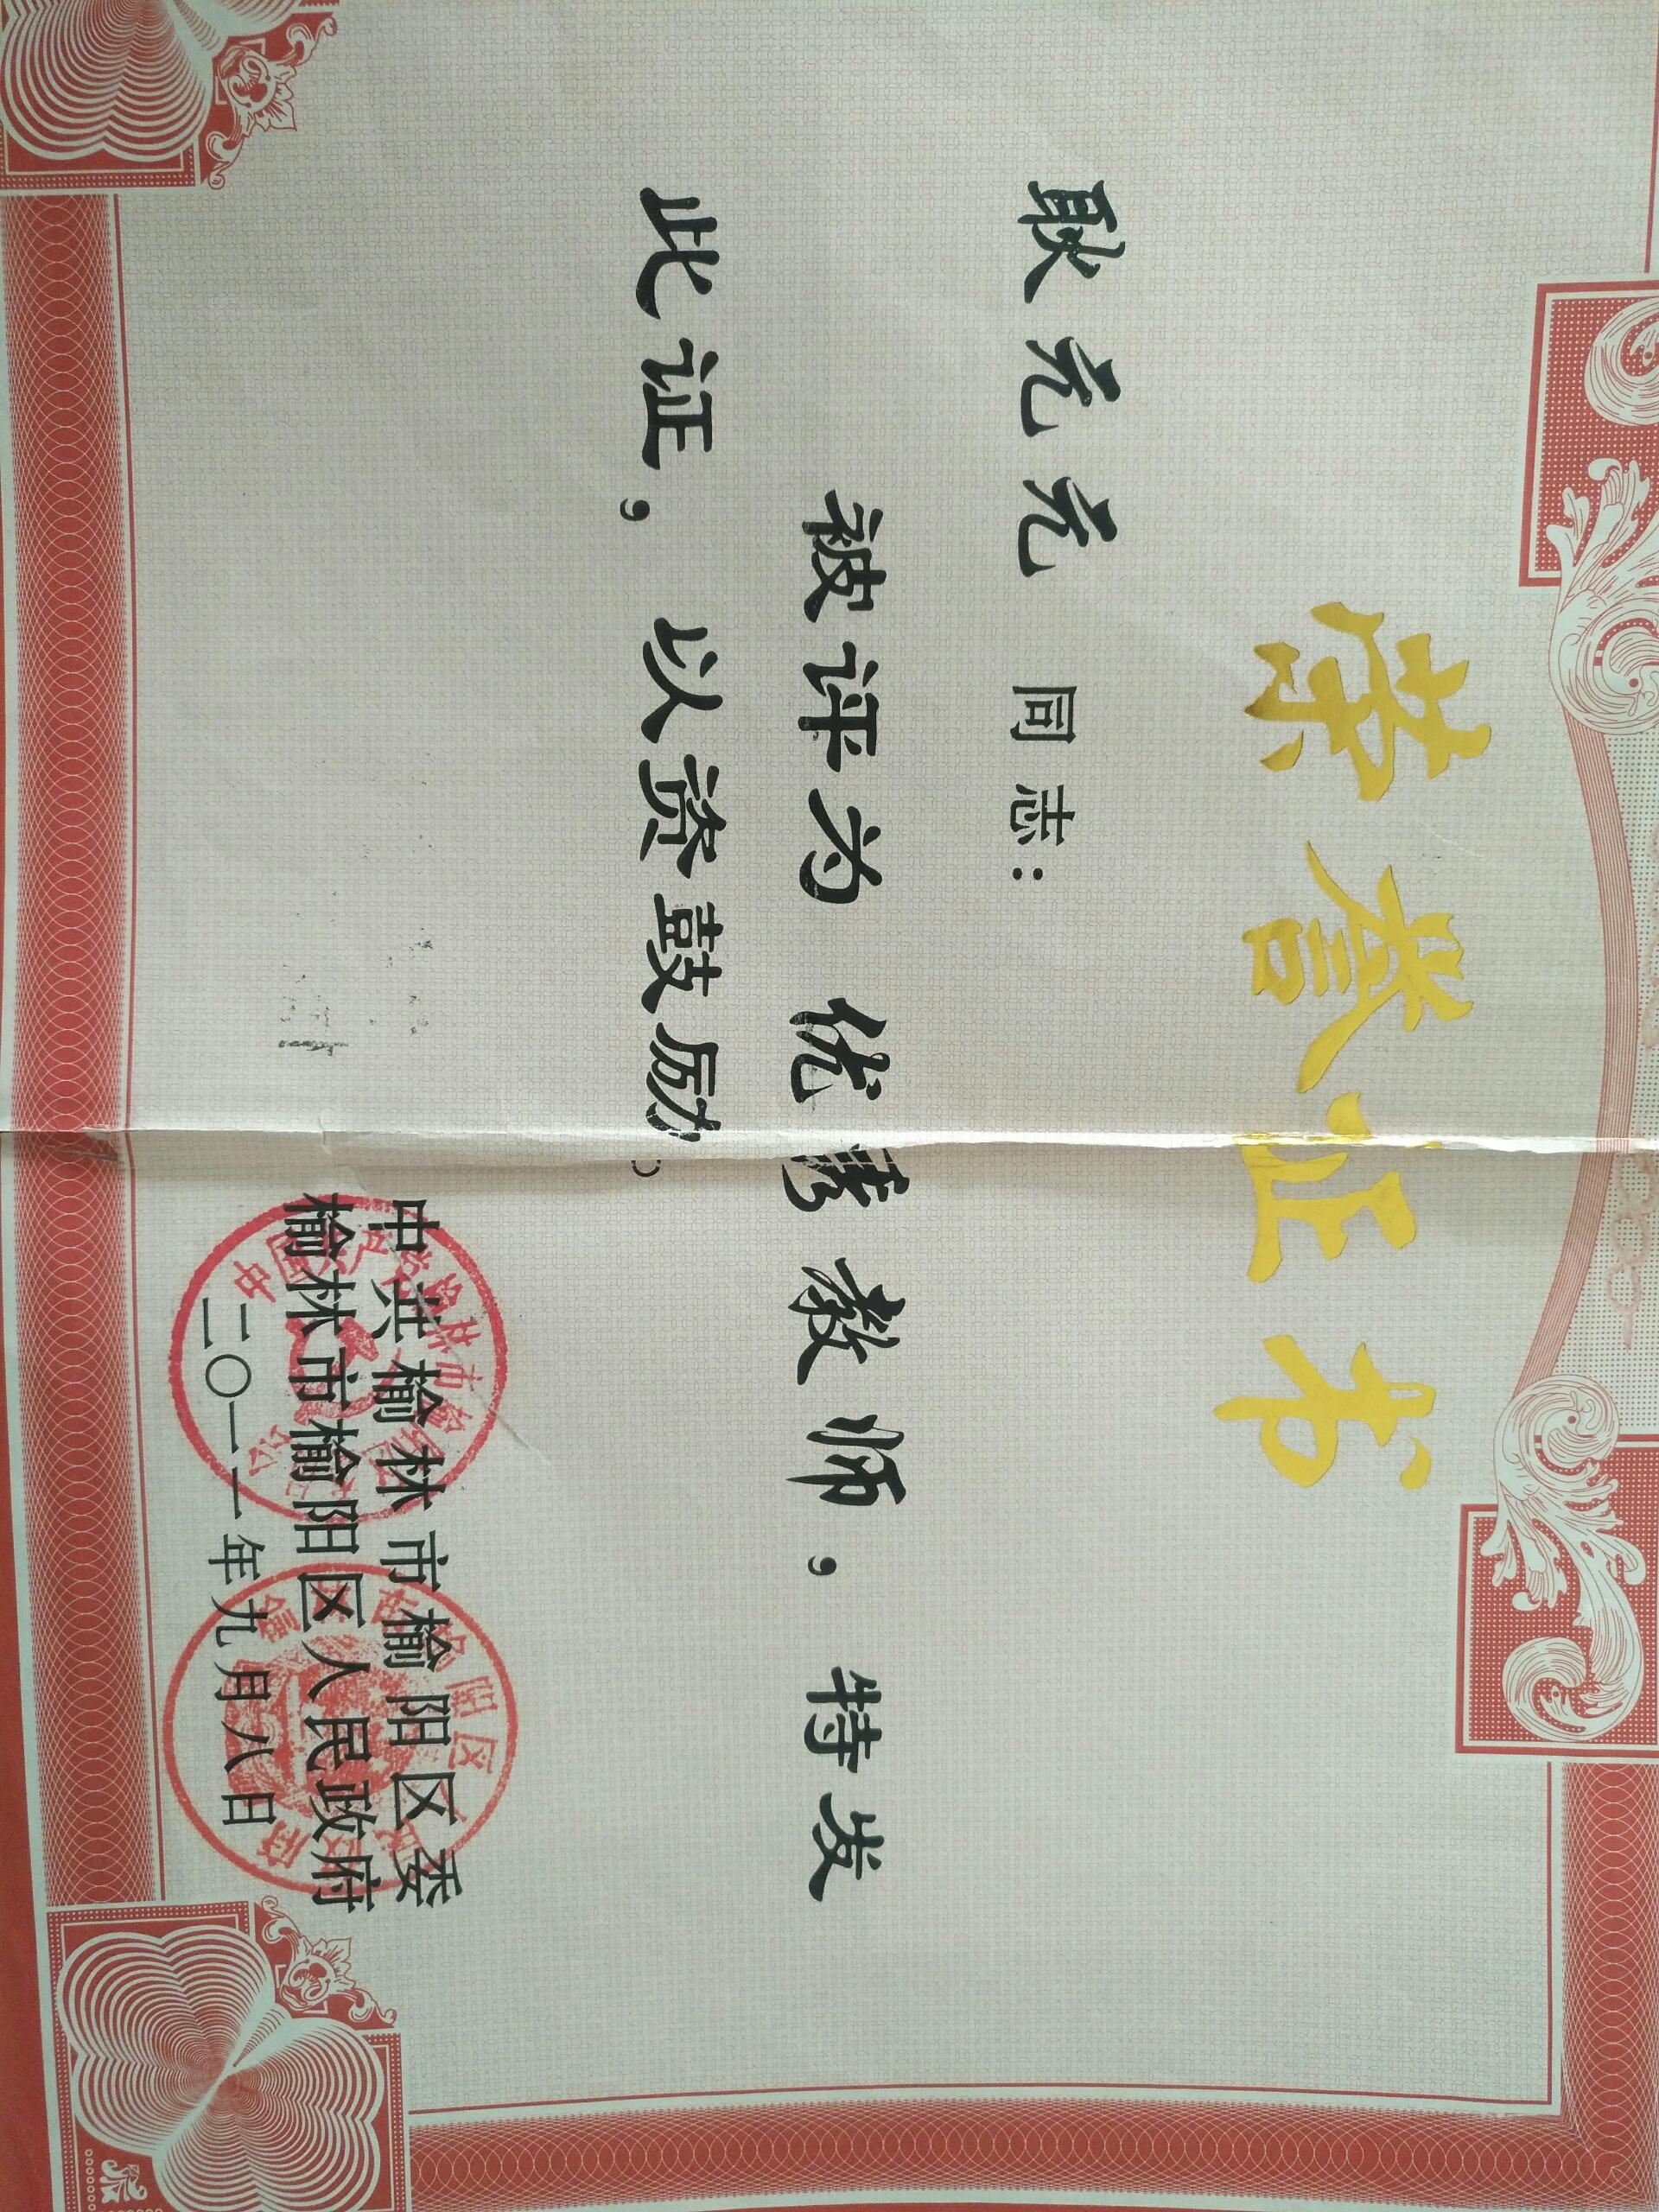 荣誉证书
耿充充 同志：
被评为 优秀教师，特发
此证，以资鼓励。
中共榆林市榆阳区委
榆林市榆阳区人民政府
二〇一一年九月八日